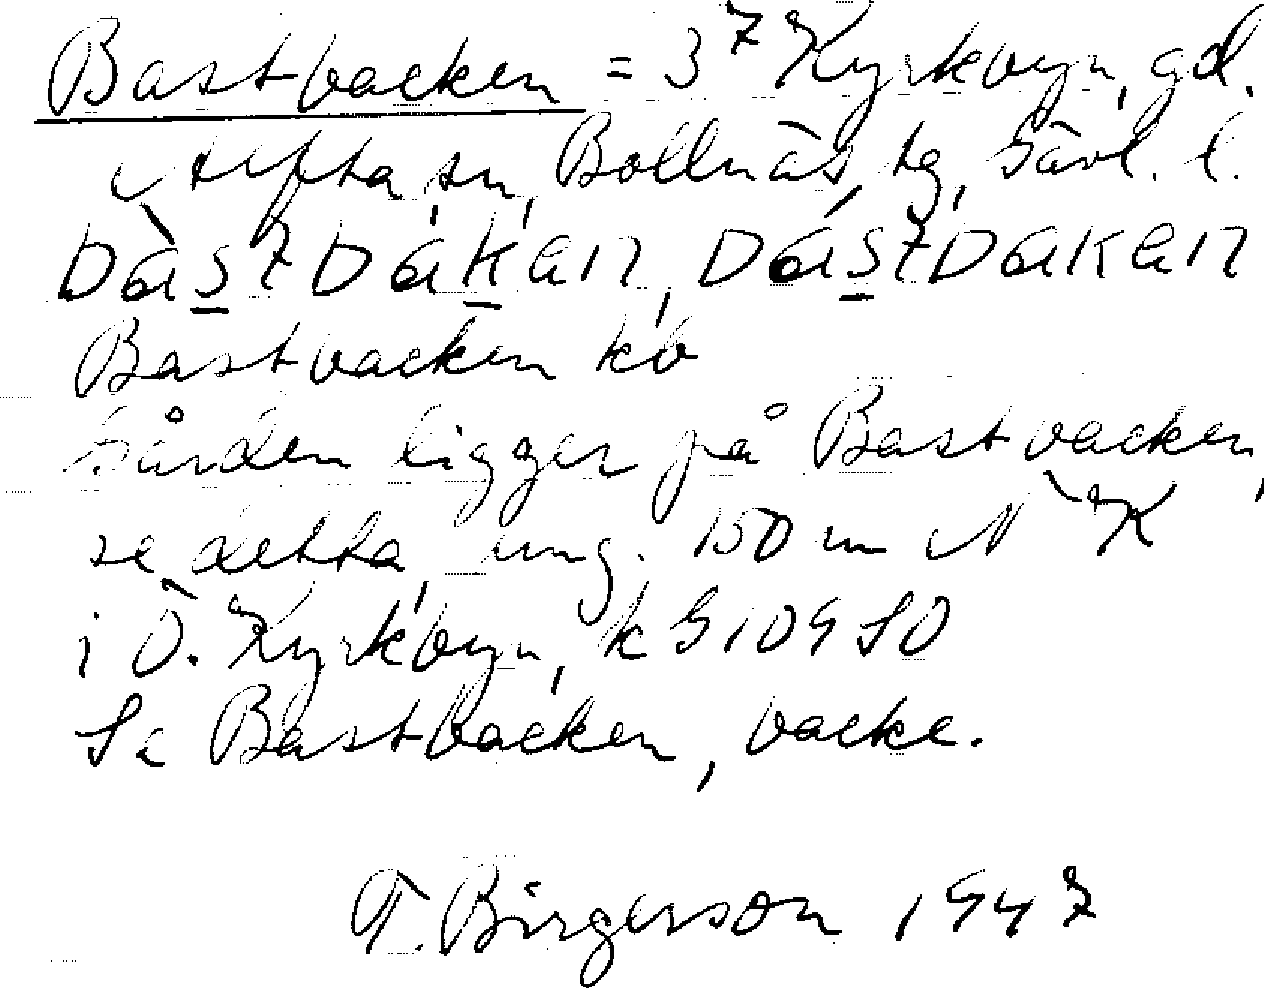 Bastbacken = 3⁷ Kyrkbyn, gd.
Alfta sn, Bollnäs tg, Gävl. l.
Bastbacken kb
Gården ligger på Bastbacken,
se detta, ung. 150 m N K
i Ö. Kyrkbyn, k G 109 SO
Se Bastbacken, backe.
T. Birgerson 1947